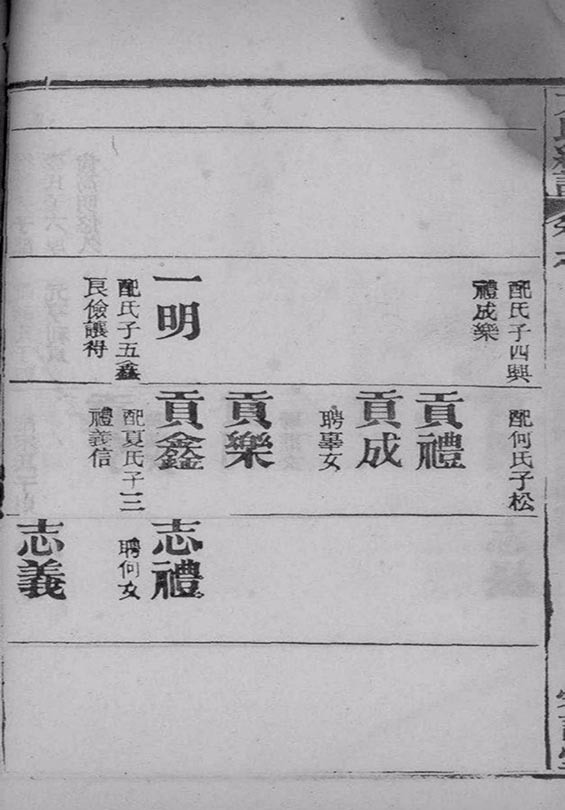 配氏子四興
禮成樂
一明
配氏子五鑫
良儉讓得
配何氏子松
貢禮
貢成
聘畢女
貢樂
貢鑫
配夏氏子三
禮義信
志禮
聘何女
志義